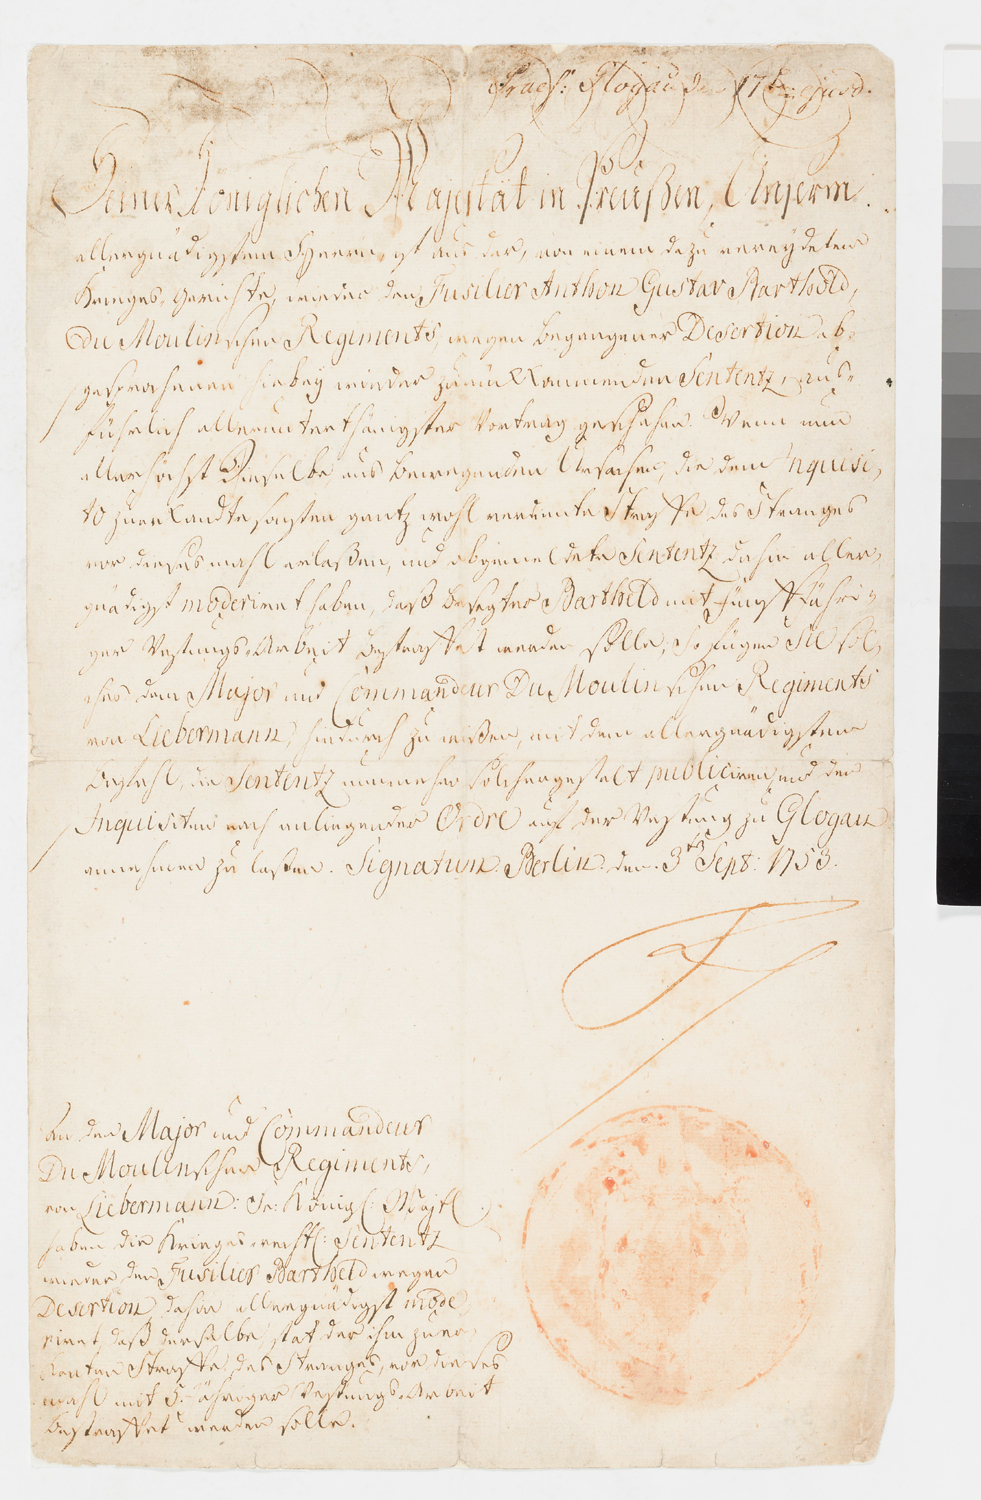 Praes: Glogau den 17t. ejusd.
Seiner Königlichen Majestät in Preußen, Unserm
allergnädigsten Herrn, ist aus der, von einem dazu vereydeten
Krieges-Gerichte, wieder den Fusilier Anthon Gustav Barthold,
Du Moulinschen Regiments, wegen begangener Desertion ab-
gesprochenen hiebey wieder zurück kommenden Sententz, aus-
führlich allerunterthänigster Vortrag geschehen. Wenn nun
allerhöchst Dieselbe aus bewegenden Ursachen, die dem Inquisi-
to zuerkandte sonsten gantz wohl verdiente Straffe des Stranges
vor dieses mahl erlaßen, und obgemeldete Sententz dahin aller-
gnädigst moderiret haben, daß besagter Barthold mit fünffjähri-
ger Vestungs-Arbeit bestraffet werden solle; So fügen Sie sol-
ches dem Major und Commandeur Du Moulinschen Regiments
von Liebermann, hiedurch zu wißen, mit dem allergnädigsten
Befehl, die Sententz nunmehro solchergestalt publiciren, und den
Inquisiten nach anliegender Ordre auf der Vestung zu Glogau
annehmen zu laßen. Signatum Berlin den 3ten Sept: 1753.
An den Major und Commandeur
Du Moulinschen Regiments,
von Liebermann: Se: Königl: Majtl
haben die Krieges-rechtl: Sententz
wieder den Fusilier Barthold wegen
Desertion dahin allergnädigst mode-
riret, daß derselbe, stat der ihm zuer-
kanten Straffe des Stranges, vor dieses
mahl mit 5. jähriger Vestungs-Arbeit
bestraffet werden solle.